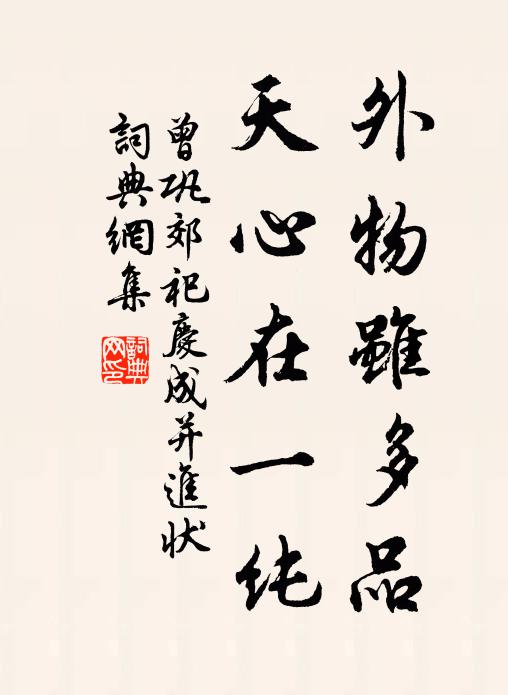 外物雖多品
天心在一纯
曾巩郊祀慶成并進狀
詞典網集
詞典网印